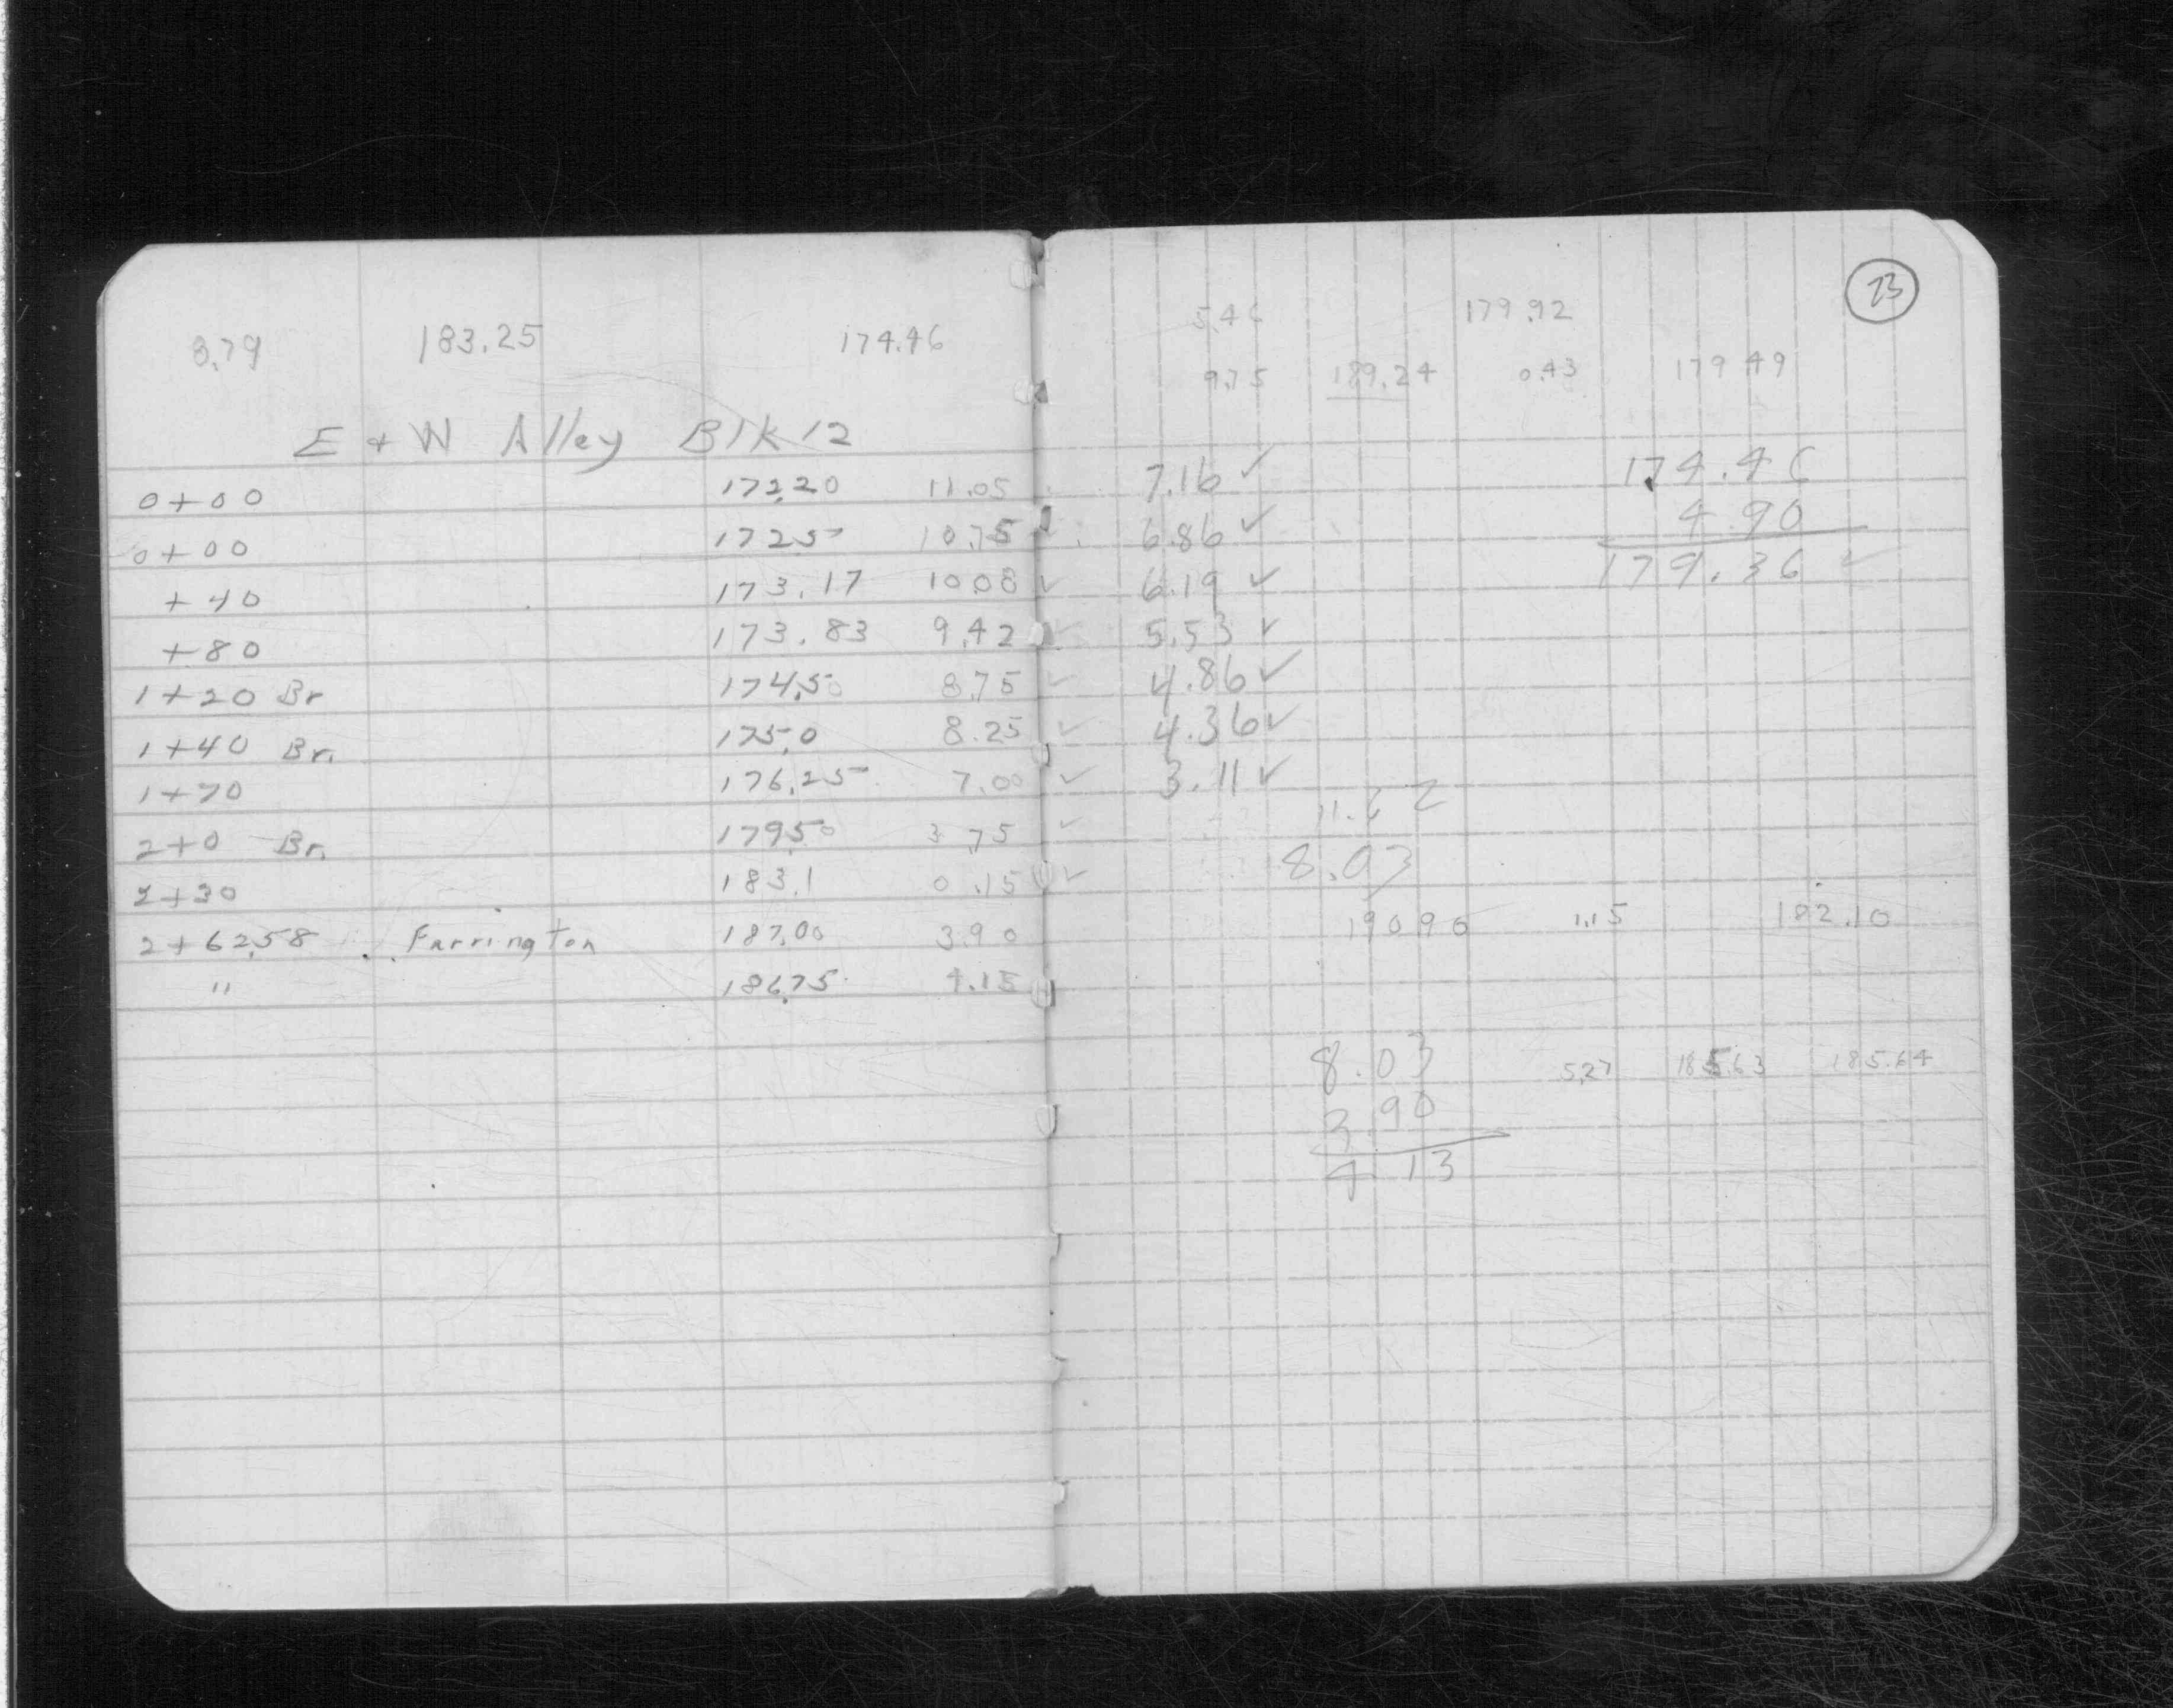 8.79 183.25 174.46
E + W Alley Blk 12
0+00 172.20 11.05
0+00 172.5 10.75
+40 173.17 10.08 ✓
+80 173.83 9.42 ✓
1+20 Br 174.50 8.75 ✓
1+40 Br. 175.0 8.25 ✓
1+70 176.25 7.00 ✓
2+0 Br. 179.50 3.75 ✓
2+30 183.1 0.15 ✓
2+62.58 Farrington 187.00 3.90
" 186.75 4.15
23
5.46 179.92
9.75 189.24 0.43 179.49
7.16 ✓ 174.46
6.86 ✓ 4.90
6.19 ✓ 179.36 ✓
5.53 ✓
4.86 ✓
4.36 ✓
3.11 ✓
8.03
190.90 1.15 182.10
8.03 5.27 185.63 185.64
3.90
4.13